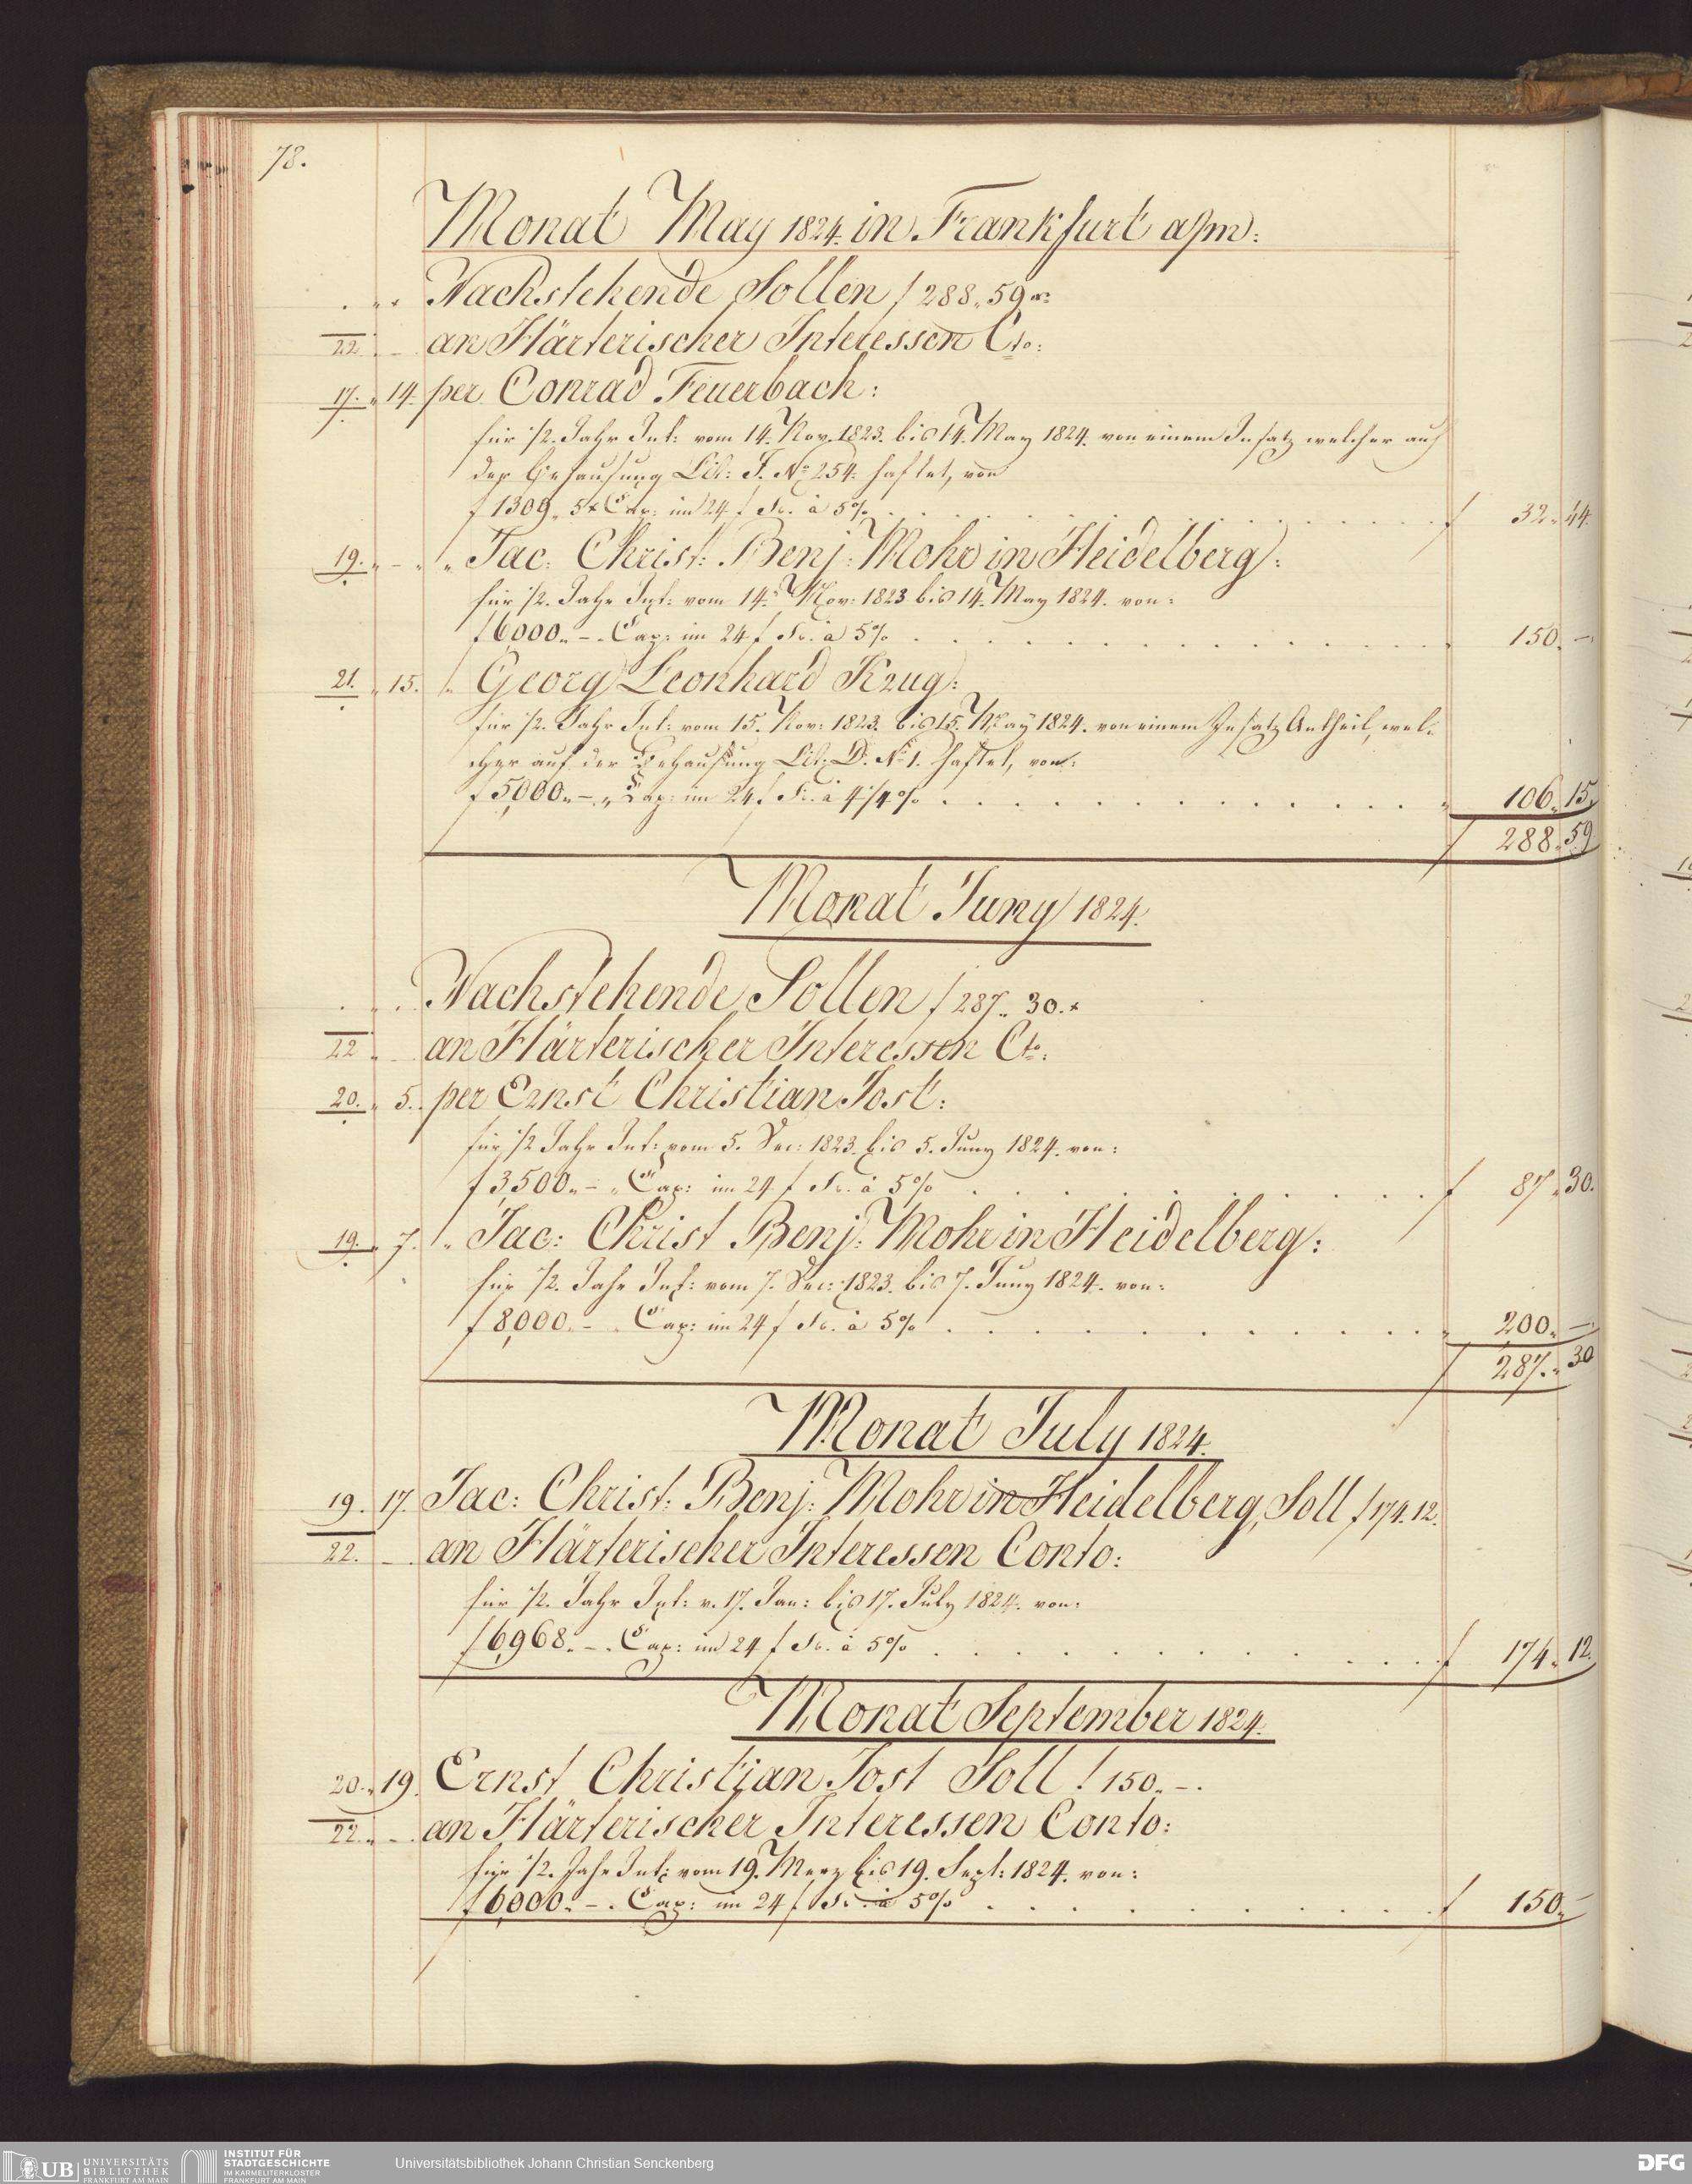 78.
Monat May 1824. in Frankfurt a/m:
Nachstehende Sollen f 288.. 59 xr:
22. an Härterischer Interessen Cto:
17. " 14. per Conrad Feuerbach:
für 1/2. Jahr Int: vom 14. Nov. 1823. bis 14. May 1824. von einem Insatz welcher auf
der Behausung Lit: J. No 254. haftet, von
f 1309. 5x Cap: im 24 f Fs. à 5% f 32 " 44.
19. " - " " Jac: Christ: Benj: Mohr in Heidelberg:
für 1/2. Jahr Int: vom 14. Nov: 1823 bis 14. May 1824. von:
f 6,000. " - . Cap: im 24 f Fs. à 5% 150. -
21. " 15. " Georg Leonhard Krug:
für 1/2. Jahr Int: vom 15. Nov: 1823. bis 15. May 1824. von einem Insatz Antheil, wel-
cher auf der Behausung Lit: D. No 1. haftet, von:
f 5,000. " - " Cap: im 24 f Fs. à 4 1/4 % " 106. 15.
f 288. 59.
Monat Juny 1824.
Nachstehende Sollen f 287.. 30. x
22 " an Härterischer Interessen Cto:
20. " 5. per Ernst Christian Jost:
für 1/2 Jahr Int: vom 5. Dec: 1823. bis 5. Juny 1824. von:
f 3,500. " - " Cap: im 24 f Fs. à 5% f 87 " 30.
19. " 7. " Jac: Christ Benj: Mohr in Heidelberg:
für 1/2. Jahr Int: vom 7. Dec: 1823. bis 7. Juny 1824. von:
f 8,000. - . Cap: im 24 f Fs. à 5% " 200. " -
f 287. " 30
Monat July 1824.
19. 17. Jac: Christ: Benj: Mohr in Heidelberg, Soll f 174. 12.
22. - . an Härterischer Interessen Conto:
für 1/2. Jahr Int: v. 17. Jan: bis 17. July 1824. von:
f 6,968. - . Cap: im 24 f Fs. à 5% f 174. 12.
Monat September 1824.
20. " 19. Ernst Christian Jost Soll f 150. - .
22. " - . an Härterischer Interessen Conto:
für 1/2. Jahr Int: vom 19. Merz bis 19. Sept: 1824. von:
f 6,000. - . Cap: im 24 f Fs. à 5% f 150. -
UB UNIVERSITÄTS BIBLIOTHEK FRANKFURT AM MAIN
INSTITUT FÜR STADTGESCHICHTE IM KARMELITERKLOSTER FRANKFURT AM MAIN
Universitätsbibliothek Johann Christian Senckenberg
DFG